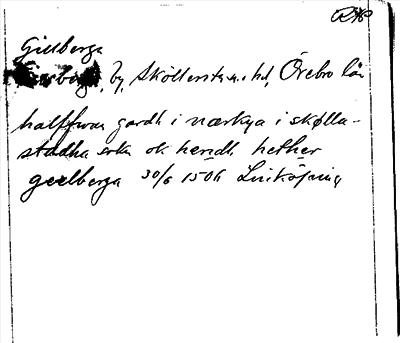 Gielberga
by, Sköllersta sn. o. hd, Örebro län
halffwan gardh i nærkya i skølla-
stadha sokn ok heradh hether
geelberga 30/6 1506 Linköping